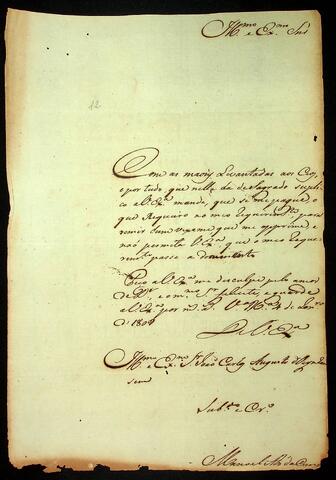 12
Illmo e Exmo Snr
Com as maons Levantadas aos Ceos,
e por tudo que nelle ha de Sagrado supli
co a V. Exa manda, que se me pague o
que Requeiro no meo Requerimto pa
remir hum vexame que me opprime e
naó permita V. Exa, que o meo Reque
rimto passe a
Peço a V. Exa me desculpe pelo amor
de Ds e o mmo Sr felicite, e guarde
a V. Exa por ms as Va Ma 4 de
de 180
De V. Exa
Illmo e Exmo Sr João Carlos Augusto d'Oeynhau
sen
Subto e Cro
Manoel